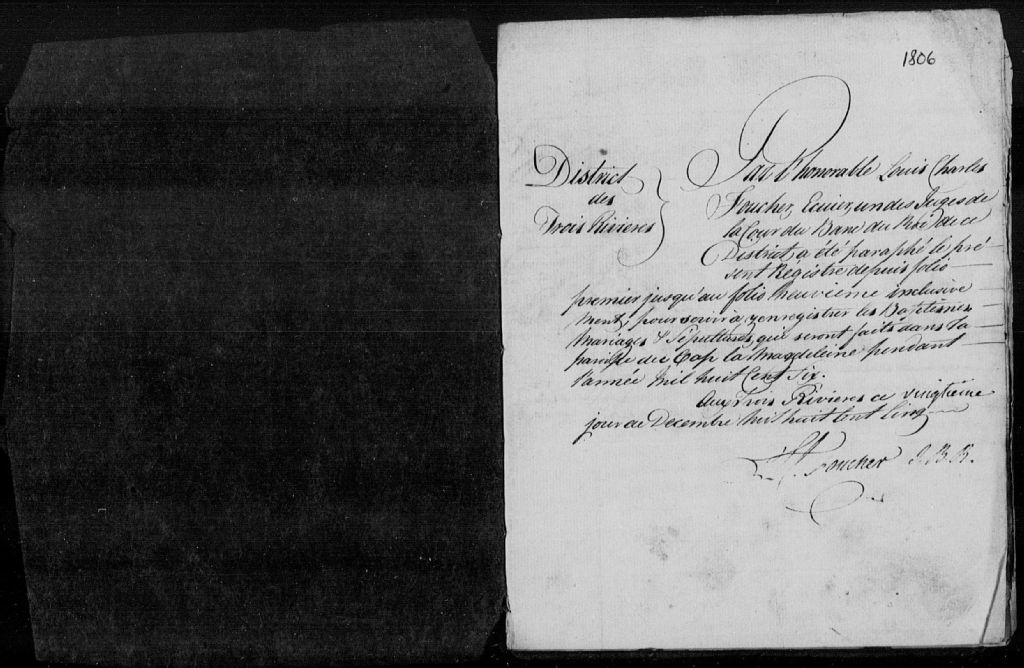 1806
District
des
Trois Rivieres
Par l'honorable Louis Charles
Foucher, Ecuier, un des Juges de
la Cour du Banc du Roi de ce
District, a été paraphé le pré-
sent Régistre depuis folio
premier jusqu'au folio neuvieme inclusive
ment, pour servir à y enregistrer les Batêsmes
Mariages & Sépultures, qui seront faits dans la
paroisse du Cap la Magdeleine pendant
l'année Mil huit Cent Six.
Aux Trois Rivieres ce vingtieme
jour de Decembre Mil huit Cent Cinq
Foucher J.B.R.